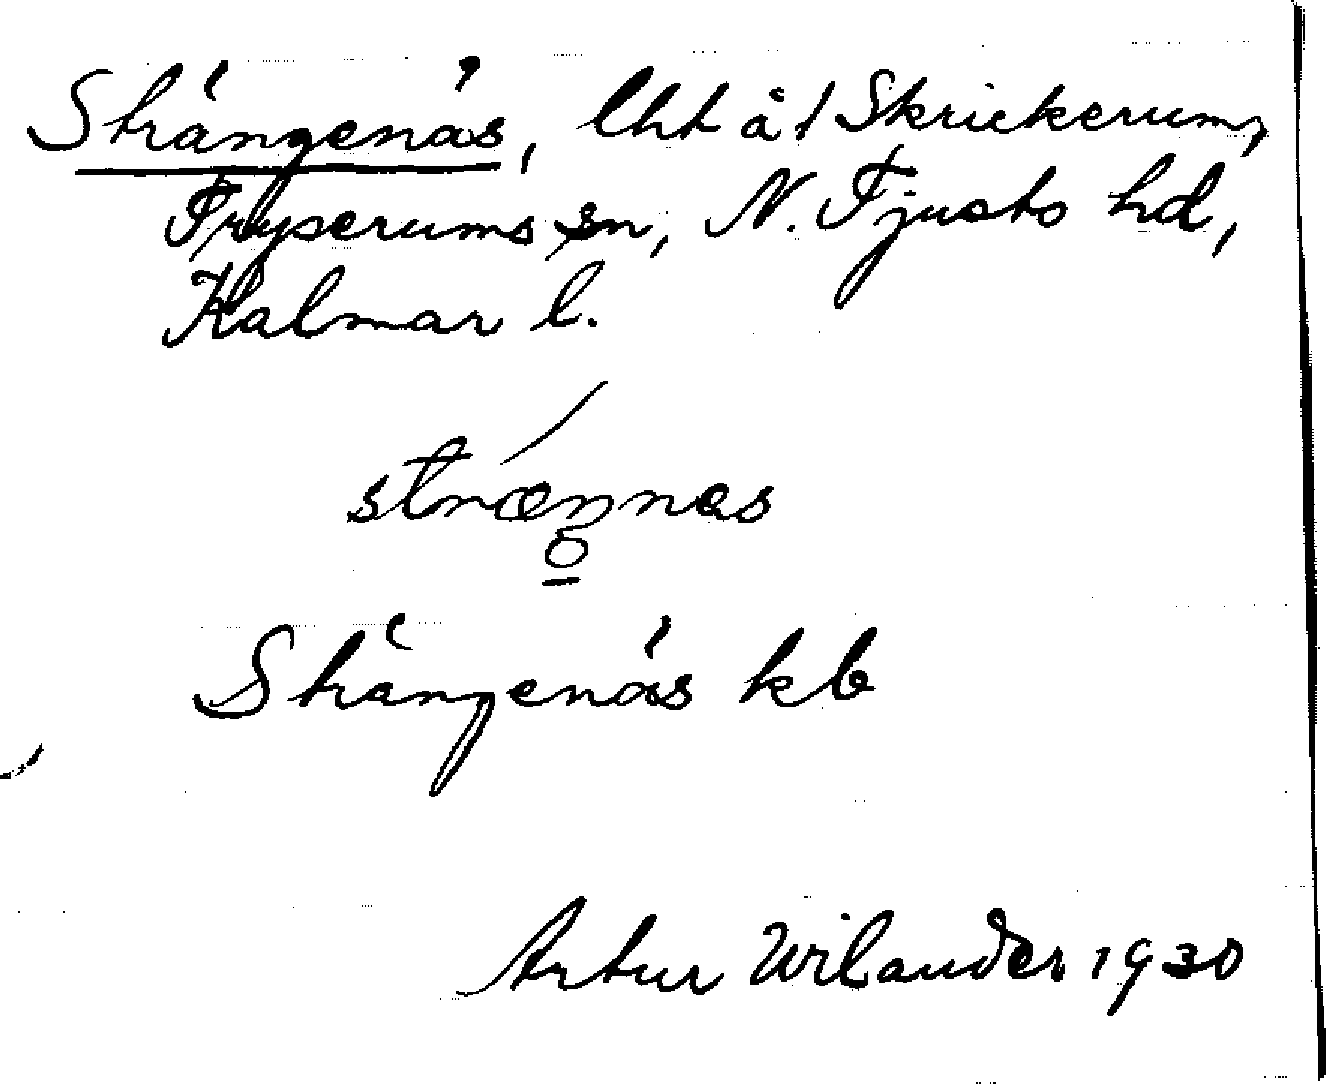 Strängenäs, lht å t Skrickerum,
Tryserums sn, N. Tjusts hd,
Kalmar l.
strænnas
Strängenäs kb
Artur Wilander 1930